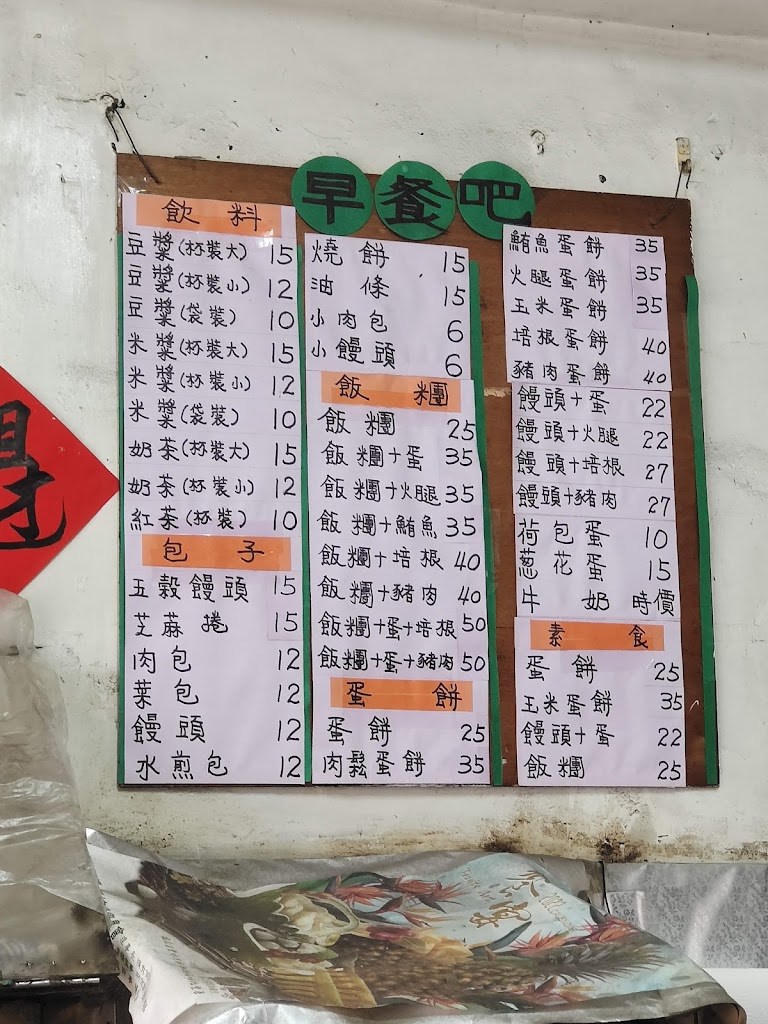 早餐吧
飲料
豆漿(杯裝大) 15
豆漿(杯裝小) 12
豆漿(袋裝) 10
米漿(杯裝大) 15
米漿(杯裝小) 12
米漿(袋裝) 10
奶茶(杯裝大) 15
奶茶(杯裝小) 12
紅茶(杯裝) 10
包子
五穀饅頭 15
芝麻捲 15
肉包 12
菜包 12
饅頭 12
水煎包 12
燒餅 15
油條 15
小肉包 6
小饅頭 6
飯糰
飯糰 25
飯糰+蛋 35
飯糰+火腿 35
飯糰+鮪魚 35
飯糰+培根 40
飯糰+豬肉 40
飯糰+蛋+培根 50
飯糰+蛋+豬肉 50
蛋餅
蛋餅 25
肉鬆蛋餅 35
鮪魚蛋餅 35
火腿蛋餅 35
玉米蛋餅 35
培根蛋餅 40
豬肉蛋餅 40
饅頭+蛋 22
饅頭+火腿 22
饅頭+培根 27
饅頭+豬肉 27
荷包蛋 10
蔥花蛋 15
牛奶 時價
素食
蛋餅 25
玉米蛋餅 35
饅頭+蛋 22
飯糰 25